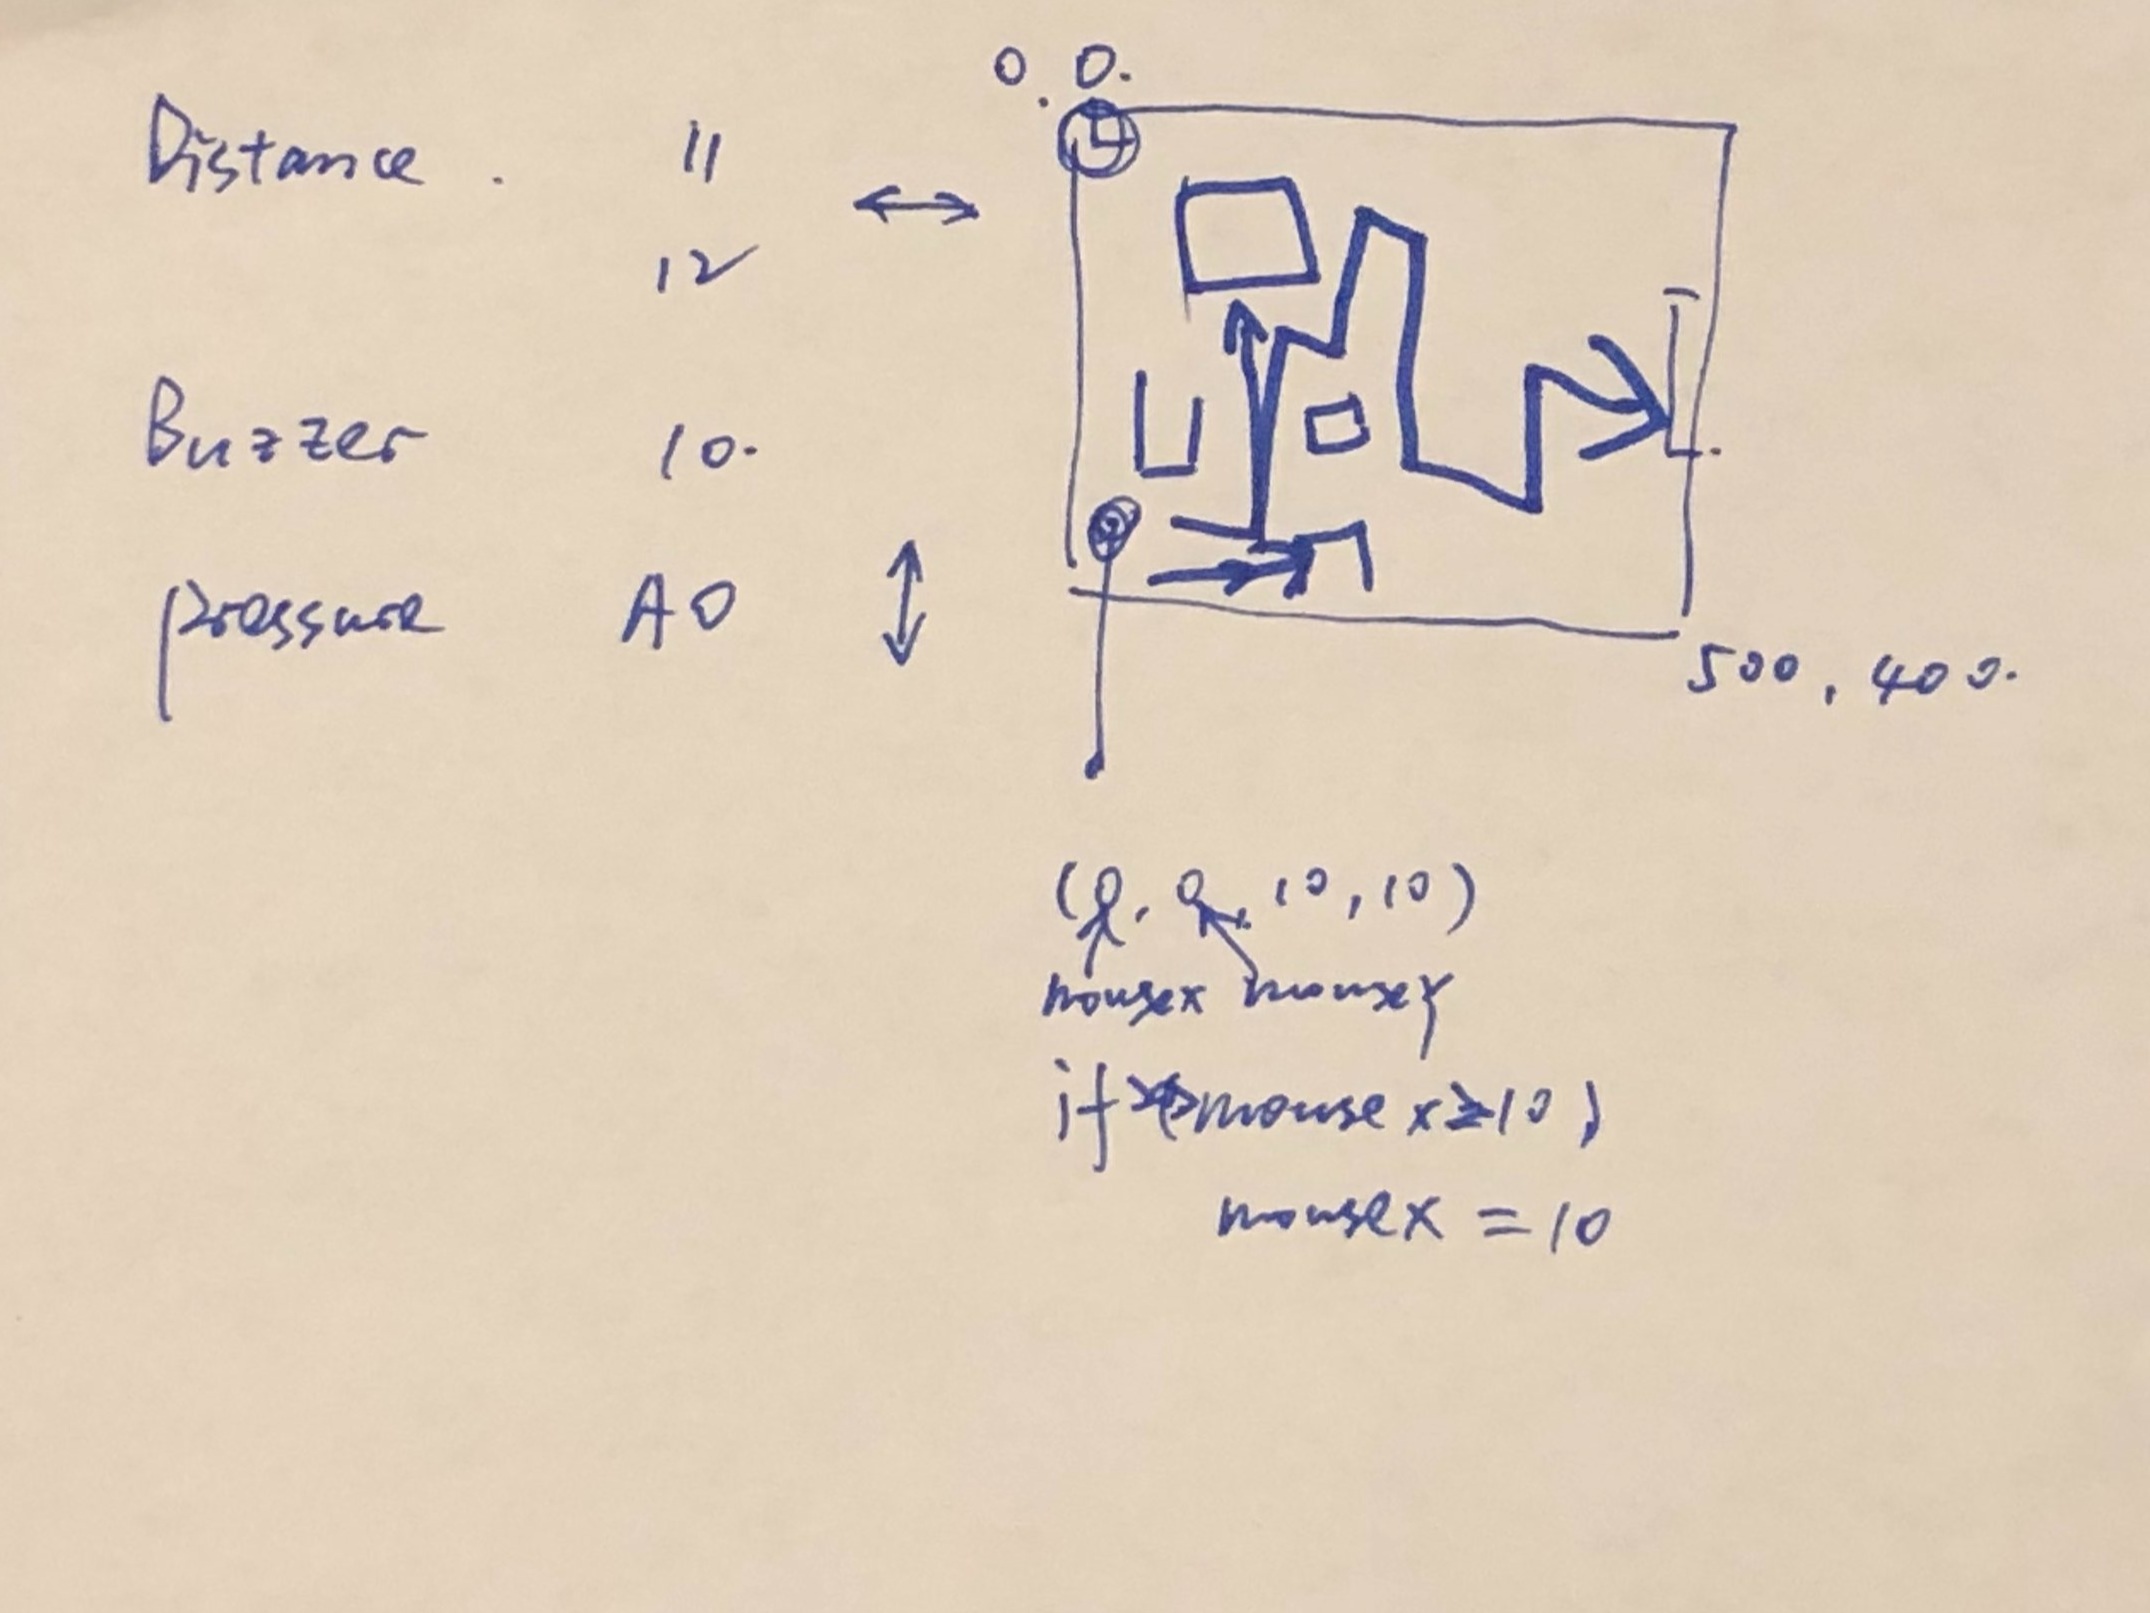 Distance . 11
12
Buzzer 10.
pressure A0
0.0.
500, 400.
(0, 0, 10, 10)
mousex mousey
if (mouse x≥10)
mousex = 10